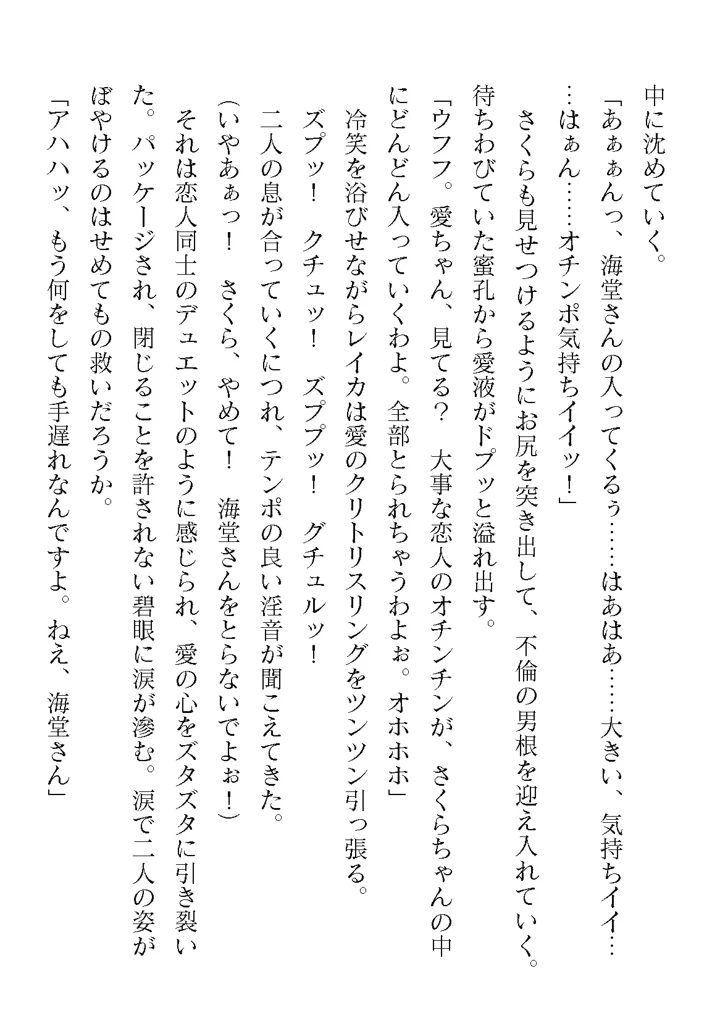 中に沈めていく。
「あぁぁんっ、海堂さんの入ってくるぅ……はあはあ……大きい、気持ちイイ…
…はぁん……オチンポ気持ちイイッ！」
さくらも見せつけるようにお尻を突き出して、不倫の男根を迎え入れていく。
待ちわびていた蜜孔から愛液がドプッと溢れ出す。
「ウフフ。愛ちゃん、見てる？　大事な恋人のオチンチンが、さくらちゃんの中
にどんどん入っていくわよ。全部とられちゃうわよぉ。オホホホ」
冷笑を浴びせながらレイカは愛のクリトリスリングをツンツン引っ張る。
ズプッ！　クチュッ！　ズププッ！　グチュルッ！
二人の息が合っていくにつれ、テンポの良い淫音が聞こえてきた。
（いやあぁっ！　さくら、やめて！　海堂さんをとらないでよぉ！）
それは恋人同士のデュエットのように感じられ、愛の心をズタズタに引き裂い
た。パッケージされ、閉じることを許されない碧眼に涙が滲む。涙で二人の姿が
ぼやけるのはせめてもの救いだろうか。
「アハハッ、もう何をしても手遅れなんですよ。ねえ、海堂さん」